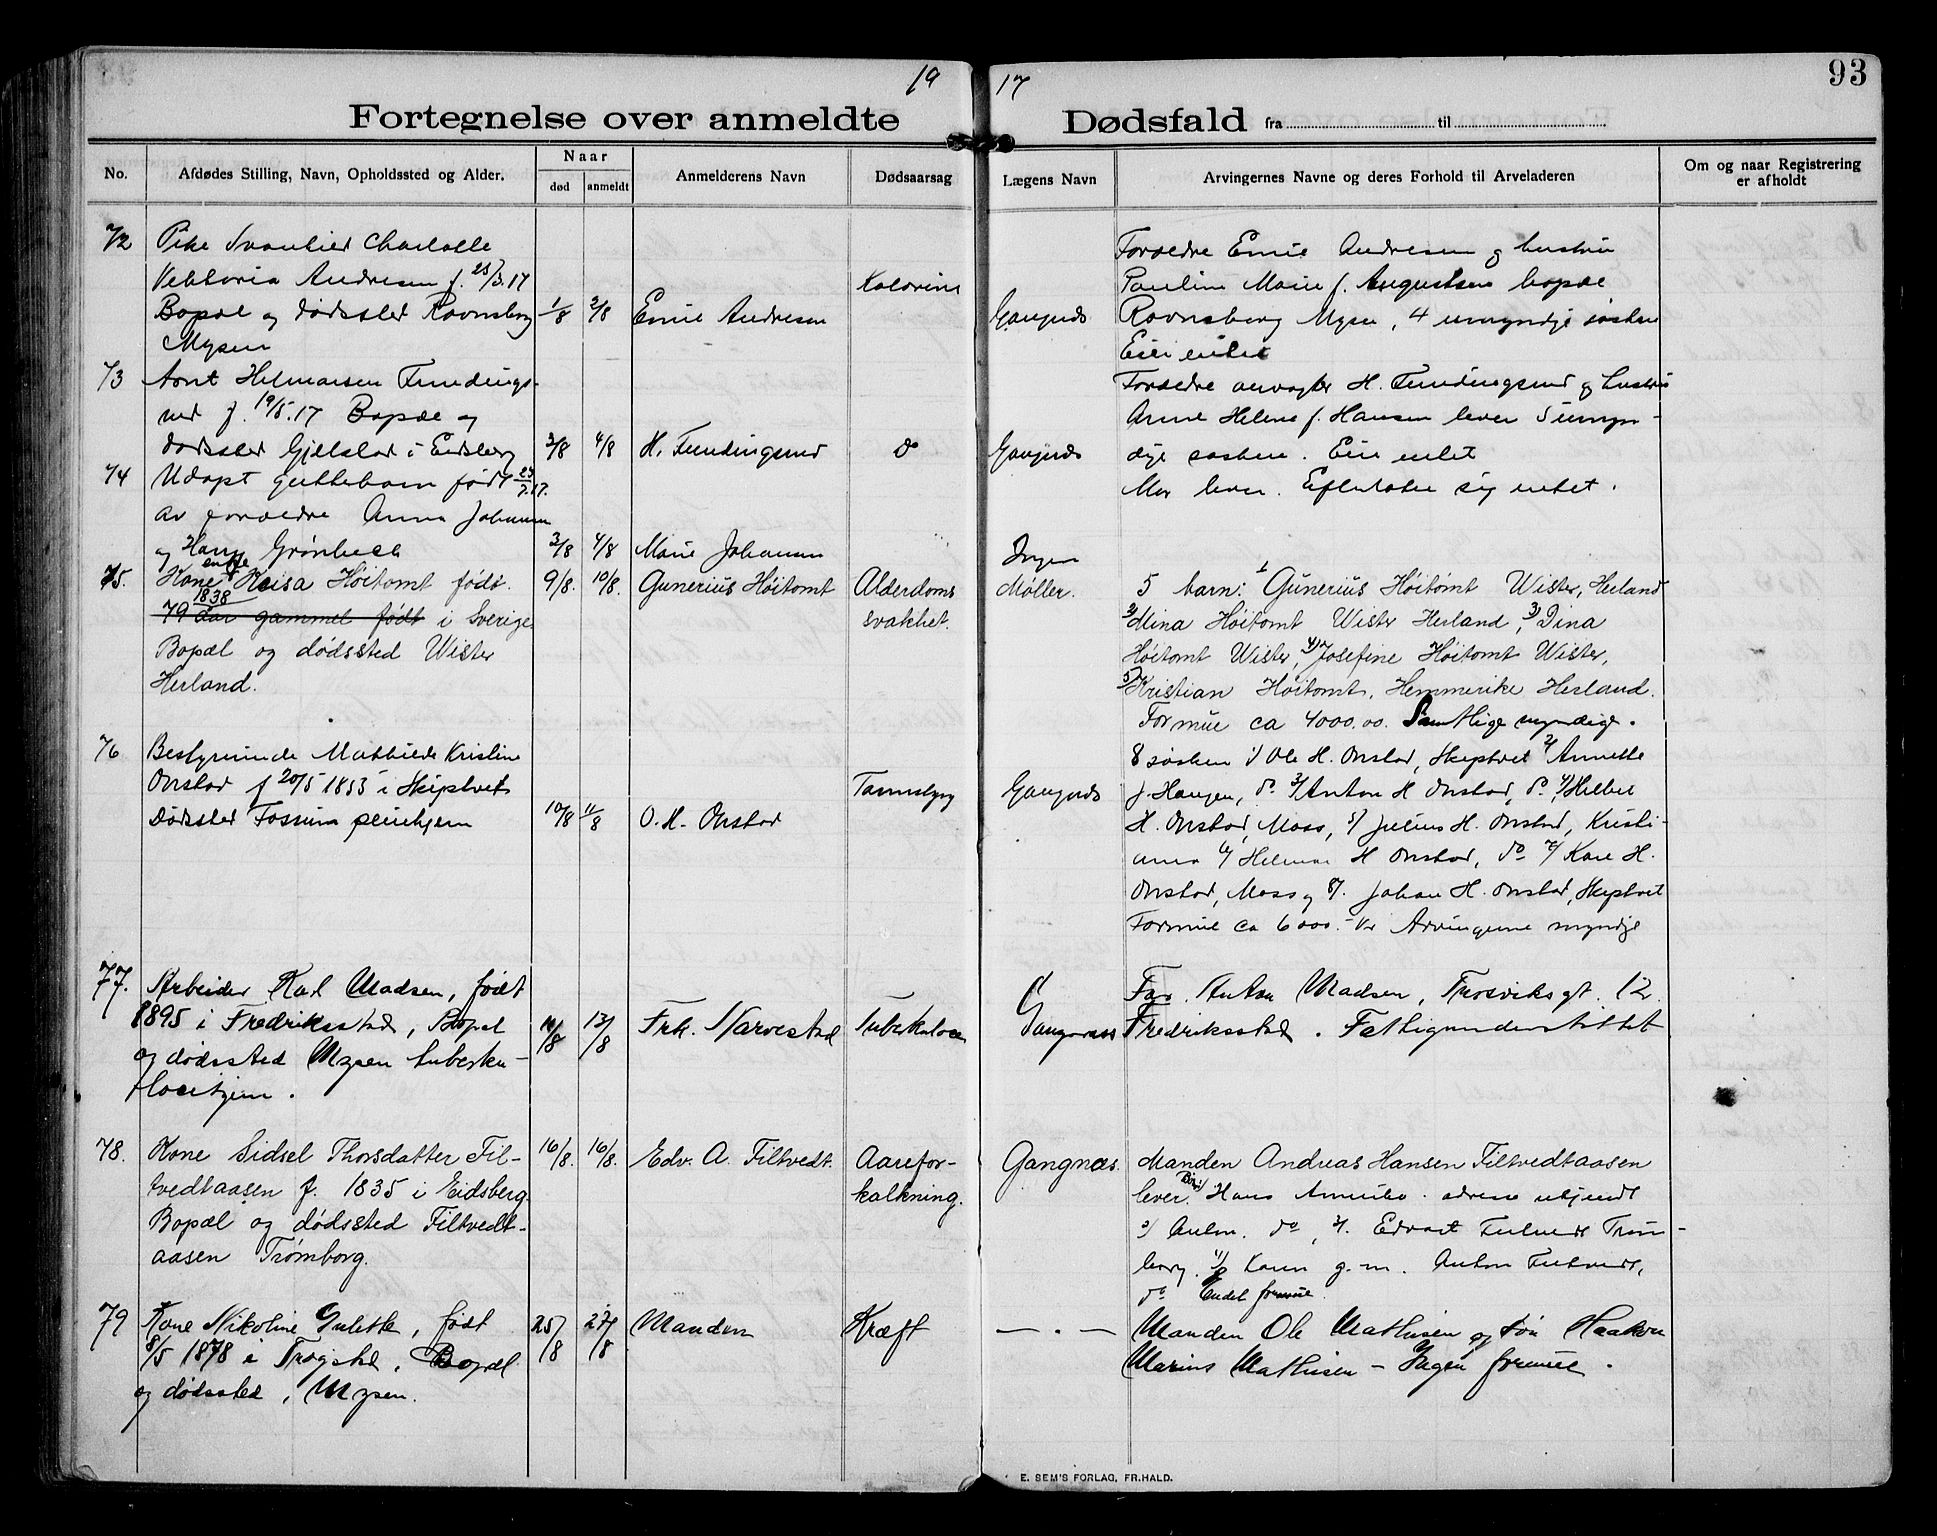 19 17
93
Fortegnelse over anmeldte Dødsfald fra til
No.
Afdødes Stilling, Navn, Opholdssted og Alder.
Naar
død
anmeldt
Anmelderens Navn
Dødsaarsag
Lægens Navn
Arvingernes Navne og deres Forhold til Arveladeren
Om og naar Registrering
er afholdt
72
Pike Svanhild Charlotte
Vektoria Andresen f. 25/3.17
Bopæl og dødssted Ravnsberg
Mysen
1/8
2/8
Emil Andresen
Kolerine
Gangnæs
Forældre Emil Andresen og hustru
Pauline Marie f. Augustsen bopæl
Ravnsberg Mysen, 4 umyndige søsken
Eier intet
73
Arnt Helmersen Tundings-
rud f. 19/5.17 Bopæl og
dødssted Gjellstad i Eidsberg
3/8
4/8
H. Fundingsrud
do
Gangnæs
Forældre H. Fundingsrud og hustru
Anne Helene f. Hansen lever 5 umyn-
dige søsken. Eier intet
74
Udøpt guttebarn født 23/7.17.
av forældre Anna Johansen
og Hans Grønbech
3/8
4/8
Marie Johansen
Ingen
Mor lever. Efterlater sig intet.
75.
Kone enke Kaisa Høitomt født
1838
79 aar gammel født i Sverige
Bopæl og dødssted Wister
Herland.
9/8.
10/8.
Gunerius Høitomt
Alderdoms
svakhet.
Møller.
5 barn: 1 Gunerius Høitomt Wister, Herland
2/ Mina Høitomt Wister Herland, 3) Dina
Høitomt Wister, 4) Josefine Høitomt Wister,
5) Kristian Høitomt, Hemmerike Herland.
Formue ca 4000.00. Samtlige myndige.
76
Bestyrerinde Mathilde Kristine
Onstad f 20/5 1853 i Skiptvet
Dødssted Fossum pleiehjem
10/8
11/8
O. H. Onstad
Gangnæs
8 søsken 1/ Ole H. Onstad, Skiptvet 2/ Annette
f. Haugen, do. 3/ Anton H Onstad, do. 4/
H. Onstad, Moss, 5/ Julius H. Onstad, Kristi-
ania 6/ Helmer H Onstad, do 7/ Karl H.
Onstad, Moss og 8/. Johan H. Onstad, Skiptvet
Formue ca 6000.- kr Arvingerne myndige
77.
Arbeider Karl Madsen, født
1895 i Fredriksstad, Bopæl
og dødssted Mysen tuberku-
losehjem.
11/8
13/8
Frk. Narvestad
Tuberkulose
Gangnæs
Far. Anton Madsen, Trosviksgt. 12.
Fredriksstad. Fattigunderstøttet
78.
Kone Sidsel Thorsdatter Fil-
tvedtaasen f. 1835 i Eidsberg
Bopæl og dødssted Filtvedt-
aasen Trømborg.
16/8.
16/8.
Edv. A. Filtvedt.
Aarefor-
kalkning.
Gangnæs.
Manden Andreas Hansen Filtvedtaasen
lever. Hans Amerika adresse ukjendt
2/ Anton. do, 3/. Edvart Filtvedt Trøm-
borg. Karen g.m. Anton Filtvedt,
do Endel formue.
79
Kone Nikoline Gulette, født
8/5 1878 i Trøgstad, Bopæl
og dødssted, Mysen.
25/8
27/8
Manden
Kræft
— . —
Manden Ole Mathisen og søn Haakon
Marius Mathisen - Ingen formue.
E. SEM'S FORLAG, FR.HALD.